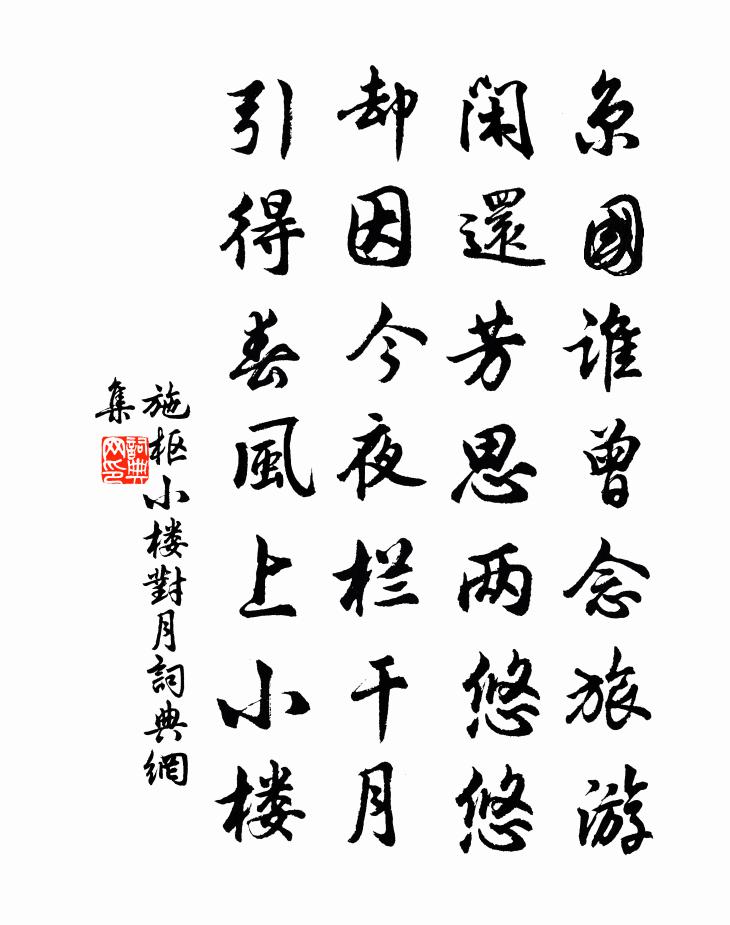 京國誰曾念旅游
閑還芳思两悠悠
却因今夜栏干月
引得春風上小楼
施枢小楼對月詞典網
集
詞典网印